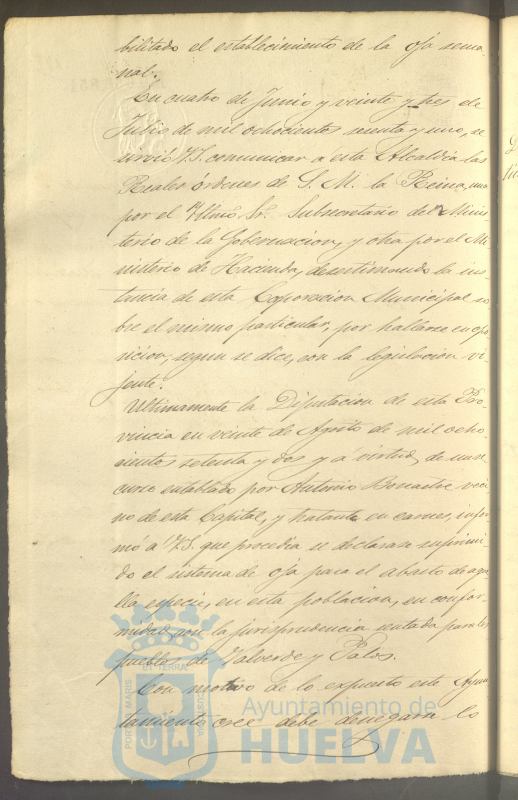 bilitado el establecimiento de la oja sema-
nal.
En cuatro de Junio y veinte y tres de
Julio de mil ochocientos sesenta y uno, se
sirvió V.S. comunicar á esta Alcaldía las
Reales órdenes de S. M. la Reina, una
por el Yltmo. Sr. Subsecretario del Minis
terio de la Gobernacion, y otra por el Mi-
nisterio de Hacienda, desestimando la ins-
tancia de esta Coporacion Municipal so
bre el mismo particular, por hallarse en opo
sicion, segun se dice, con la legislacion vi-
jente.
Ultimamente la Diputacion de esta Pro-
vincia en veinte de Agosto de mil ocho
cientos setenta y dos y á virtud, de un re
curso entablado por Antonio veci
no de esta Capital, y tratante en carnes, infor
mó á V.S. que procedia se declarase suprimi-
do el sistema de oja para el abasto de aque
lla especie, en esta poblacion, en confor-
midad con la jurisprudencia sentada para los
pueblos de Valverde y Palos.
Con motivo de lo expuesto este Ayun
tamiento cree debe denegarse lo
PORTUS MARIS ET TERRÆ CUSTODIA
Ayuntamiento de
HUELVA